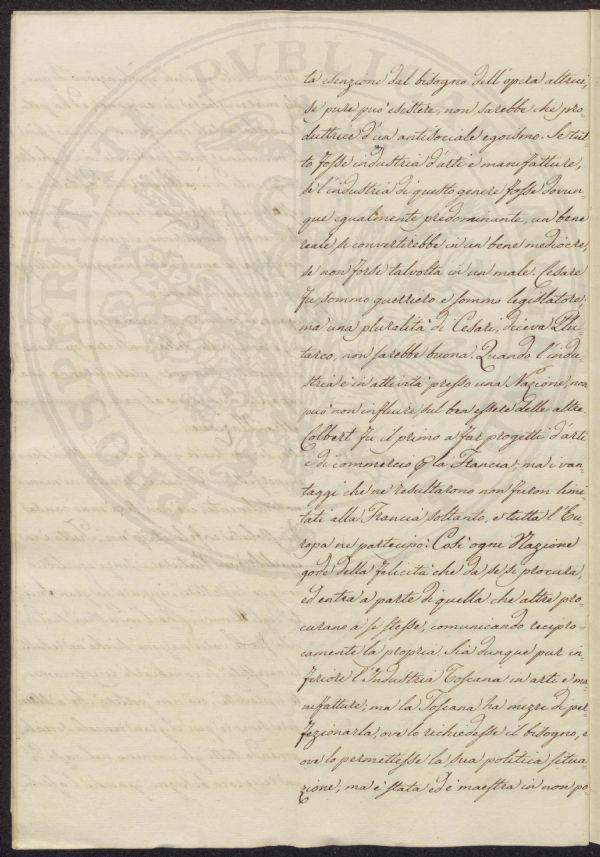 la esenzione dal bisogno dell'opera altrui,
se pure può esistere, non sarebbe che pro-
duttrice d'un antisociale egoismo. Se tut-
to fosse industria d'arti e manifatture,
se l'industria di questo genere fosse dovun-
que egualmente predominante, un bene
reale si convertirebbe in un bene mediocre,
se non forse talvolta in un male. Cesare
fu sommo guerriero e sommo legislatore;
ma una pluralità di Cesari, diceva Plu-
tarco, non sarebbe buona. Quando l'indu-
stria è in attività presso una Nazione, non
può non influire sul ben essere delle altre.
Colbert fu il primo a far progetti d'arti
e di commercio p la Francia; ma i van-
taggi che ne resultarono non furon limi-
tati alla Francia soltanto, e tutta l'Eu-
ropa ne partecipò. Così ogni Nazione
gode della felicità che da se si procura,
ed entra a parte di quella che altre pro-
curano a se stesse, comunicando recipro-
camente la propria. Sia dunque pur in-
feriore l'Industria Toscana in arti e ma-
nifatture; ma la Toscana ha mezzi di per-
fezionarla, ove lo richiedesse il bisogno, e
ove lo permettesse la sua politica situa-
zione, ma è stata ed è maestra in non po-